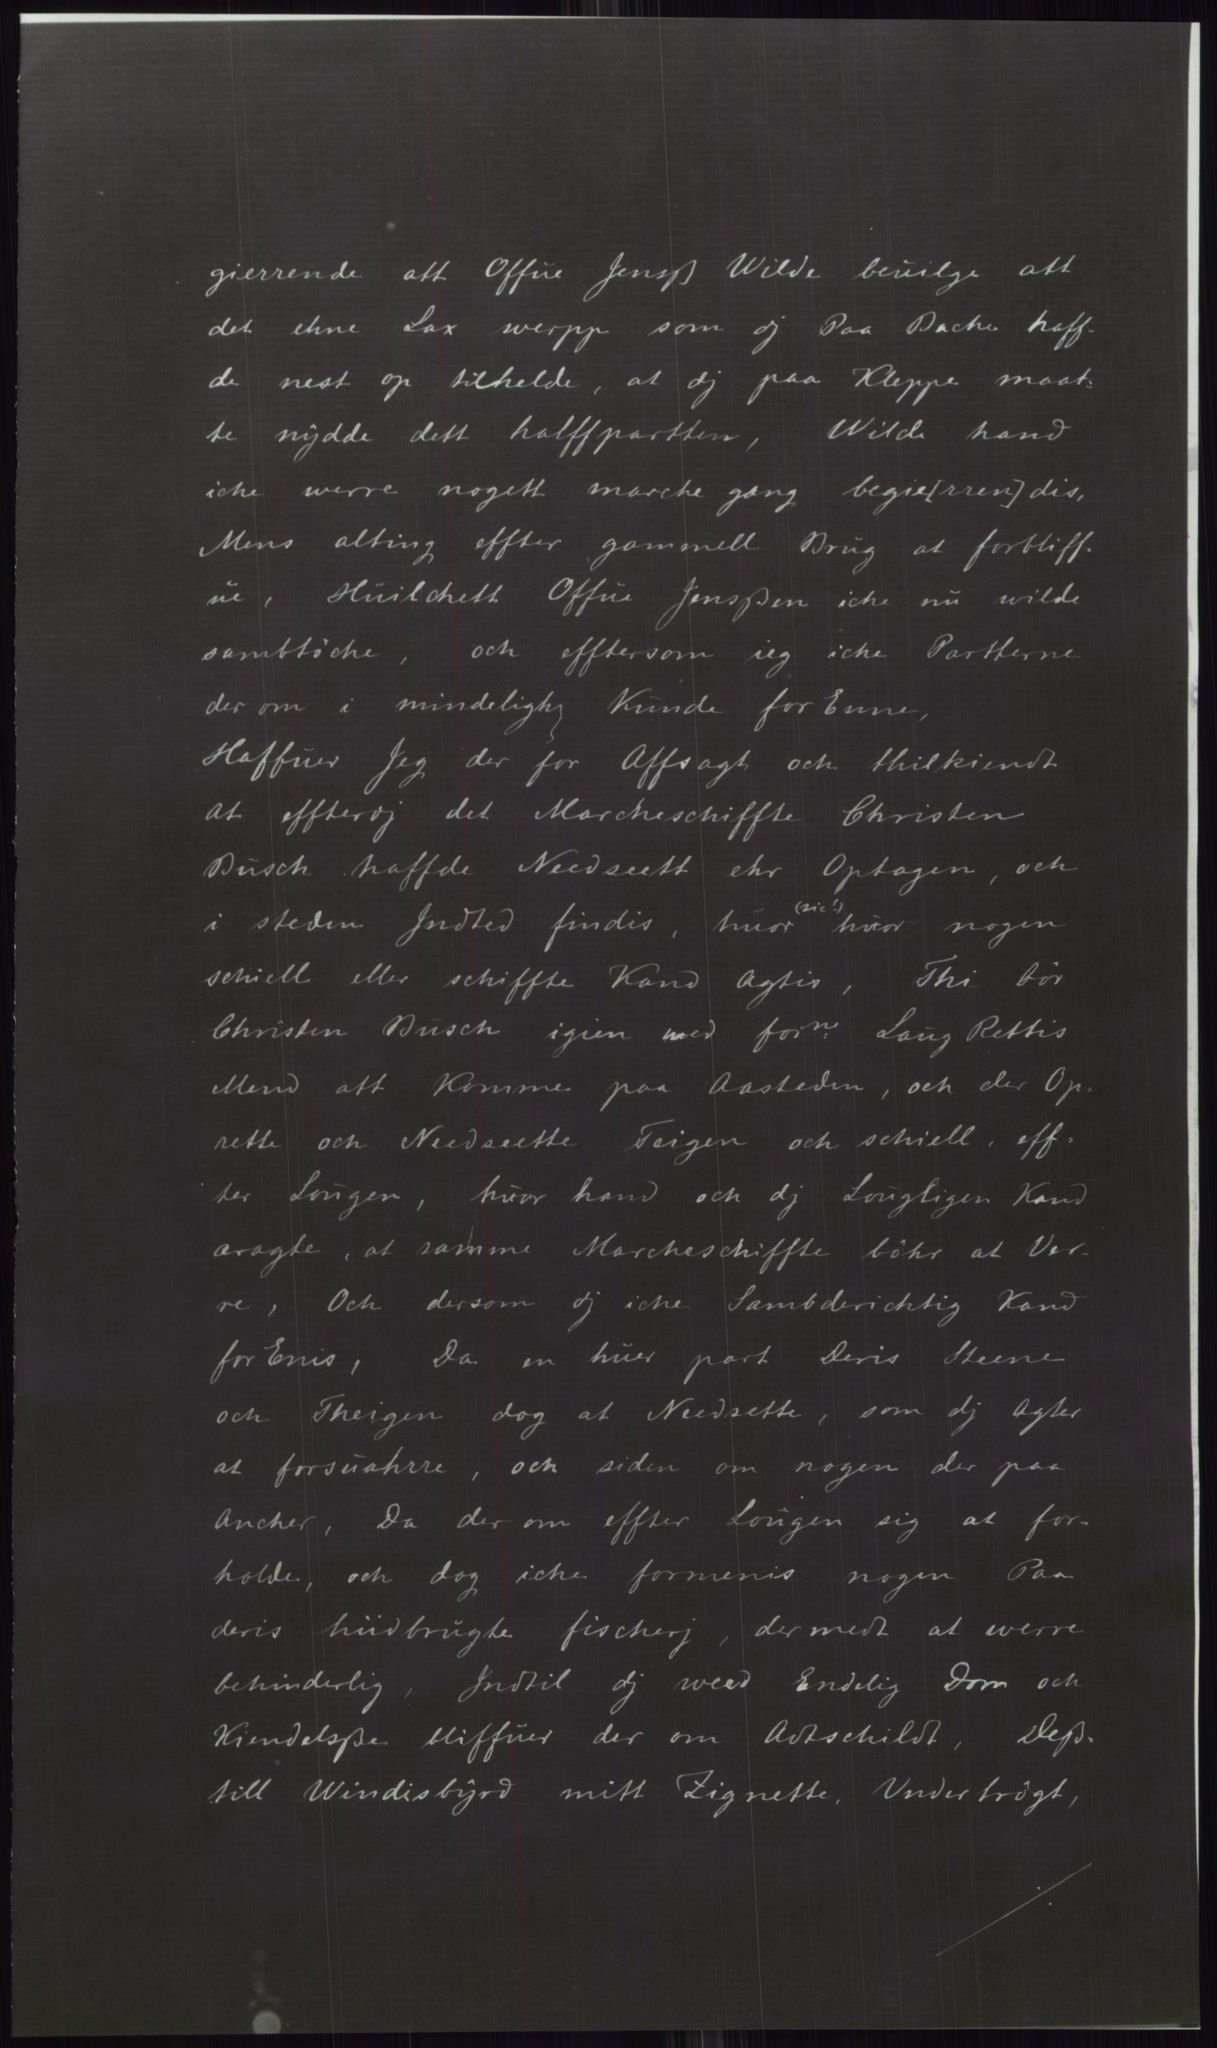 gierrende att Offue Jensß Wilde beuilge att
det ehne Lax werpp som dj Paa Bache haff-
de nest op tilhelde, at dj paa Kleppe maat-
te nÿdde dett halffpartten, Wilde hand
iche werre nogett marche gang begie[rren]dis,
Mens alting effter gammell Brug at forbliff-
ue, Huilchett Offue Jensßen iche nu wilde
sambtöche, och efftersom ieg iche Partterne
der om i mindelighz Kunde for Enne,
Haffuer Jeg der for Affsagt och thilkiendt
at effterdj det Marcheschiffte Christen
Busch haffde Needseett ehr Optagen, och
i steden Jndted findis, huor (sic!) huor nogen
schiell eller schiffte Kand Agtis, Thi bör
Christen Busch igien med forne: Laug Rettis
Mend att Komme paa Aasteden, och der Op-
rette och Needseette Teigen och schiell, eff-
ter Lougen, huor hand och dj Lougligen Kand
æragte, at samme Marcheschiffte böhr at Ver-
re, Och dersom dj iche Sambderichtig Kand
for Enis, Da en huer part Deris Steene
och Theigen dog at Needsette, som dj Agter
at forsuahrre, och siden om nogen der paa
Ancher, Da der om effter Lougen sig at for-
holde, och dog iche formenis nogen Paa
deris hüdbrugte fischerj, der medt at werre
behinderlig, Jndtil dj weed Endelig Dom och
Kiendelsße bliffuer der om Adtschildt, Deß-
till Windisbÿrd mitt Zignette, Vndertrögt,